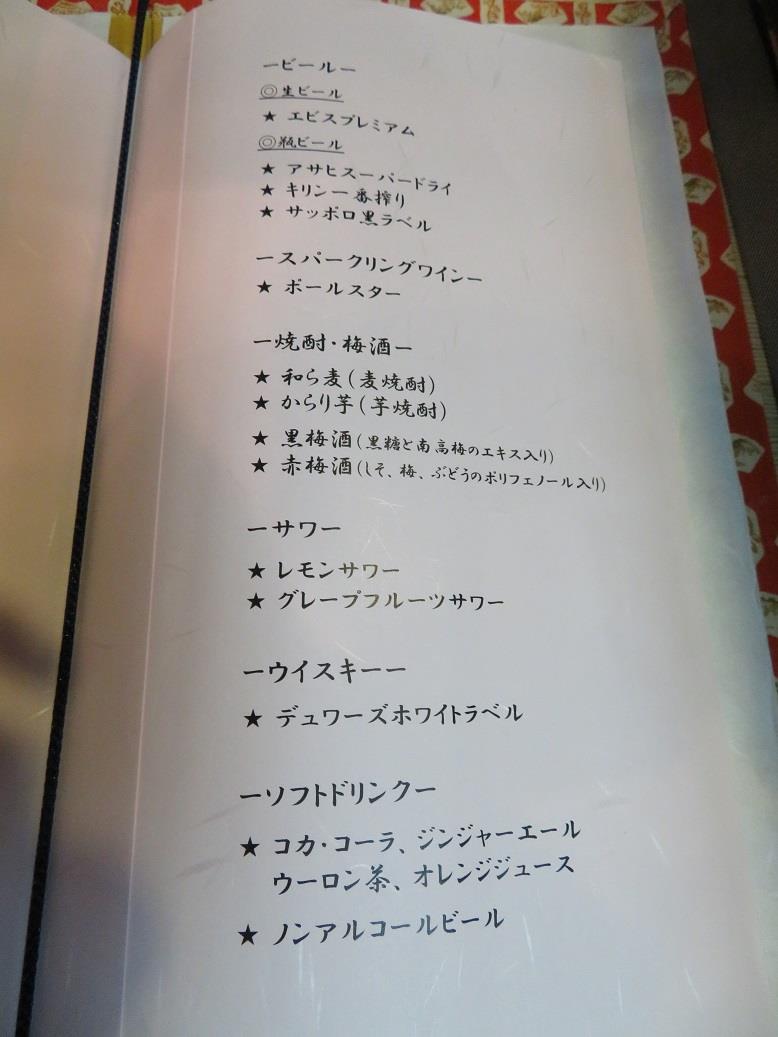 ービールー
◎生ビール
★ エビスプレミアム
◎瓶ビール
★ アサヒスーパードライ
★ キリン一番搾り
★ サッポロ黒ラベル
ースパークリングワインー
★ ポールスター
ー焼酎・梅酒ー
★ 和ら麦(麦焼酎)
★ からり芋(芋焼酎)
★ 黒梅酒(黒糖と南高梅のエキス入り)
★ 赤梅酒(しそ、梅、ぶどうのポリフェノール入り)
ーサワー
★ レモンサワー
★ グレープフルーツサワー
ーウイスキーー
★ デュワーズホワイトラベル
ーソフトドリンクー
★ コカ・コーラ、ジンジャーエール
ウーロン茶、オレンジジュース
★ ノンアルコールビール